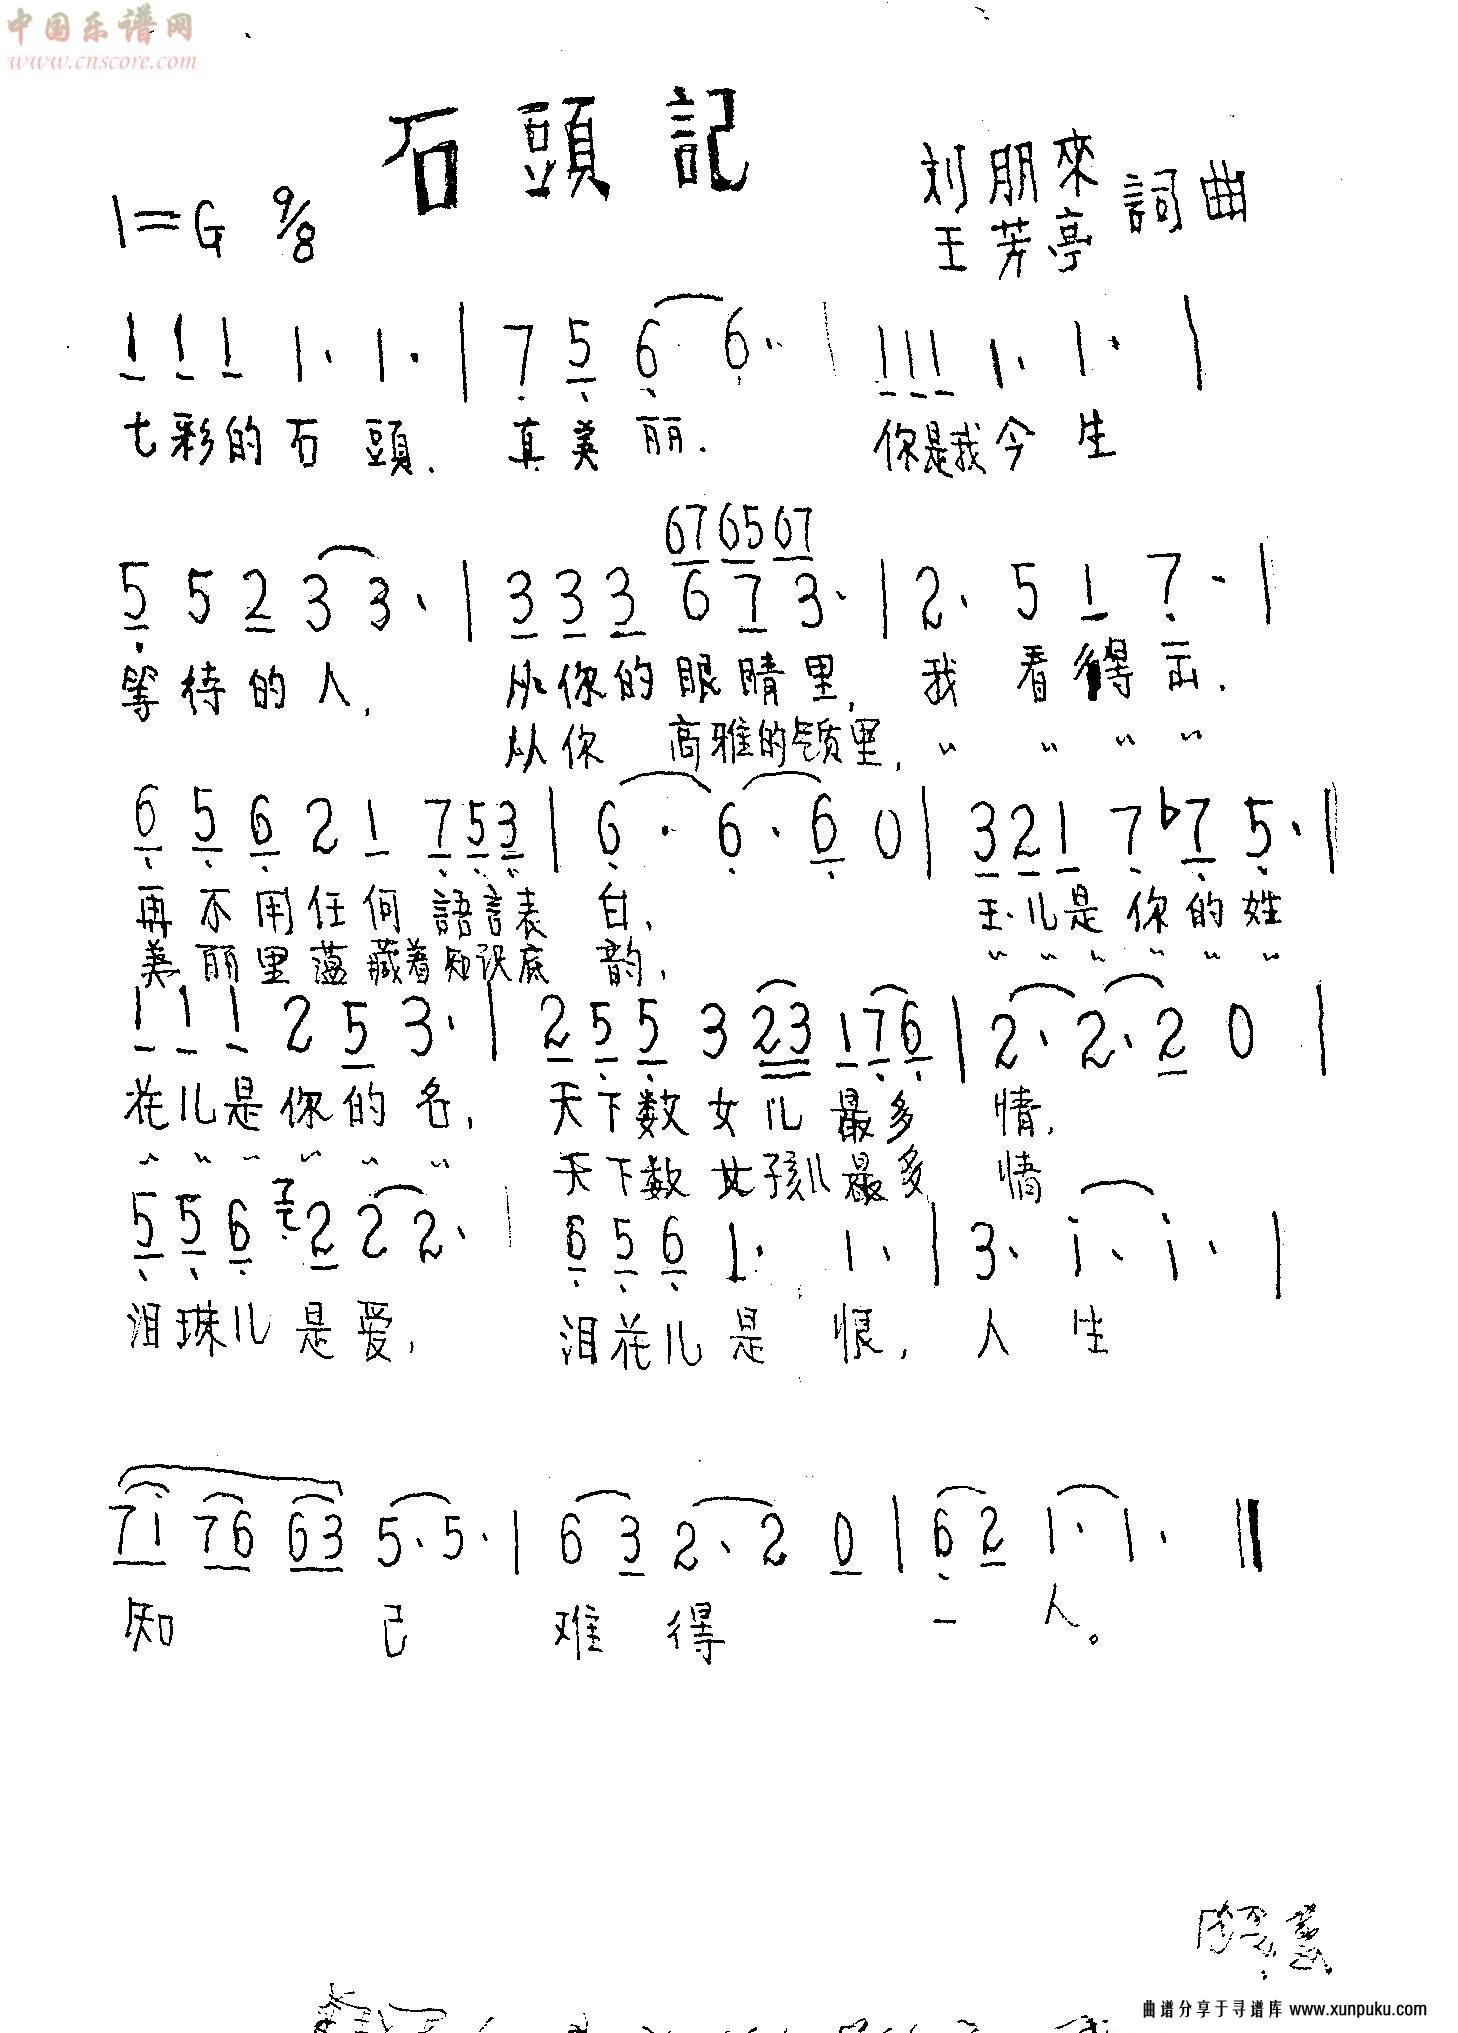 中国乐谱网
www.cnscore.com
石頭記
刘朋來
1=G 9/8
王芳亭 詞曲
1 1 1 1· 1· | 7 5 6 6· | 1 1 1 1· 1· |
七彩的石頭. 真美丽. 你是我今生
67 65 67
5 5 2 3 3· | 3 3 3 6 7 3· | 2· 5 1 7· |
等待的人, 从你的眼睛里, 我看得出.
从你高雅的气质里, 〃 〃 〃 〃
6 5 6 2 1 7 5 3 | 6· 6· 6 0 | 3 2 1 7 b7 5· |
再不用任何語言表白, 玉儿是你的姓
美丽里蕴藏着知识底韵, 〃 〃 〃 〃 〃 〃
1 1 1 2 5 3· | 2 5 5 3 23 1 7 6 | 2· 2· 2 0 |
花儿是你的名, 天下数女儿最多情,
〃 〃 〃 〃 〃 〃 天下数女孩儿最多情
5 5 6 2 2 2· | 6 5 6 1· 1· | 3· i· i· |
泪珠儿是爱, 泪花儿是恨, 人生
7i 76 63 5·5· | 6 3 2·2 0 | 6 2 1·1· ‖
知己难得一人。
曲谱分享于寻谱库 www.xunpuku.com